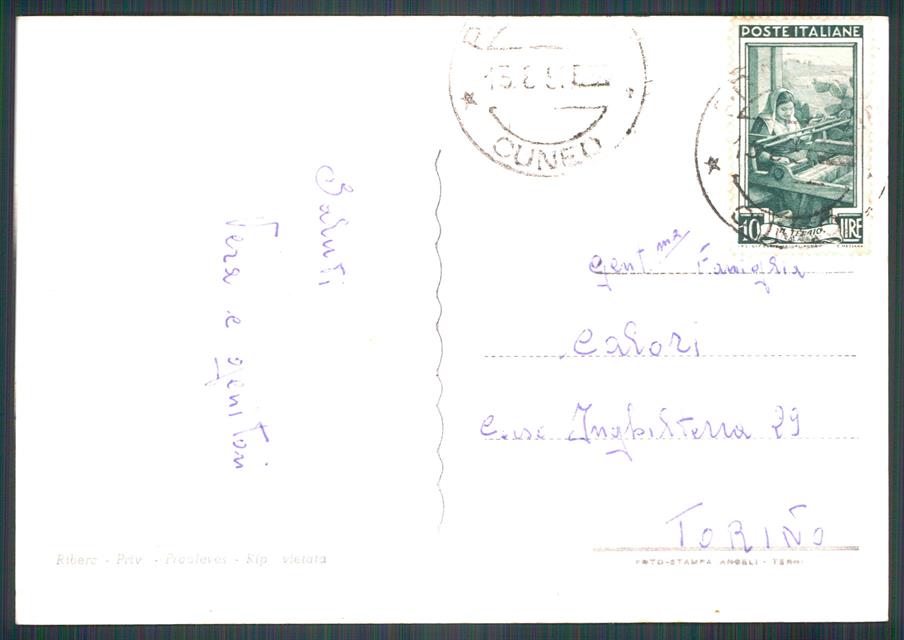 Saluti
Vera e genitori
POSTE ITALIANE
10 LIRE
IL TELAIO
CUNEO
Gent.ma Famiglia
Calori
Corso Inghilterra 29
TORINO
Ribero - Priv - Pradleves - Rip. vietata
FOTO-STAMPA ANGELI - TERNI